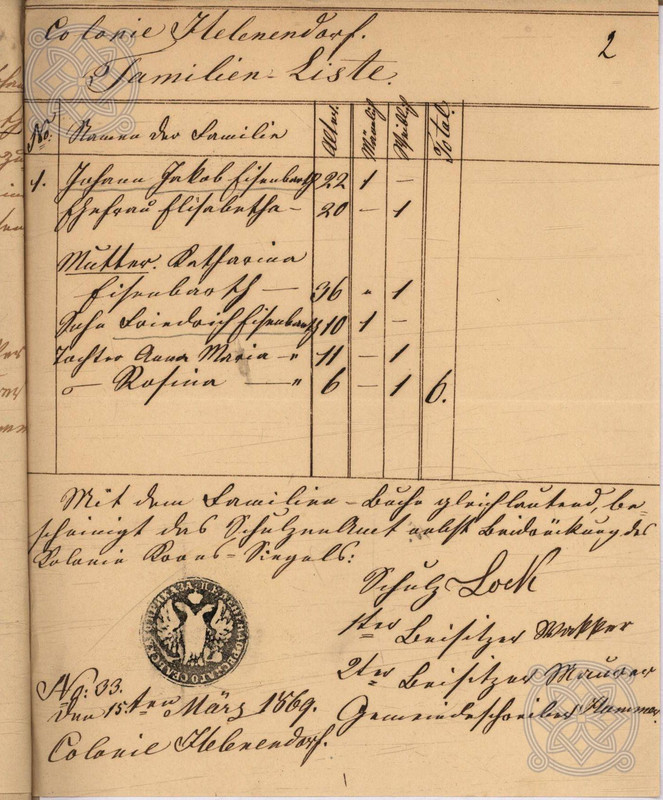 Colonie Helenendorf.
2
Familien-Liste.
No. Namen der Familie Alter. Männlich Weiblich Total.
1. Johann Jakob Eisenbarth 22 1 —
Ehefrau Elisabetha — 20 — 1
Mutter. Katharina
Eisenbarth — 36 " 1
Sohn Friedrich Eisenbarth 10 1 —
Tochter Anna Maria — " 11 — 1
" — Rosina — " 6 — 1 6.
Mit dem Familien-Buche gleichlautend, be-
scheinigt das Schulzenamt nebst Beidrückung des
Kolonie Krons-Siegels:
Schulz Lock
1ter Beisitzer Wakker
2ter Beisitzer Maurer
Gemeindeschreiber Hammer.
No: 33.
den 15ten März 1869.
Colonie Helenendorf.